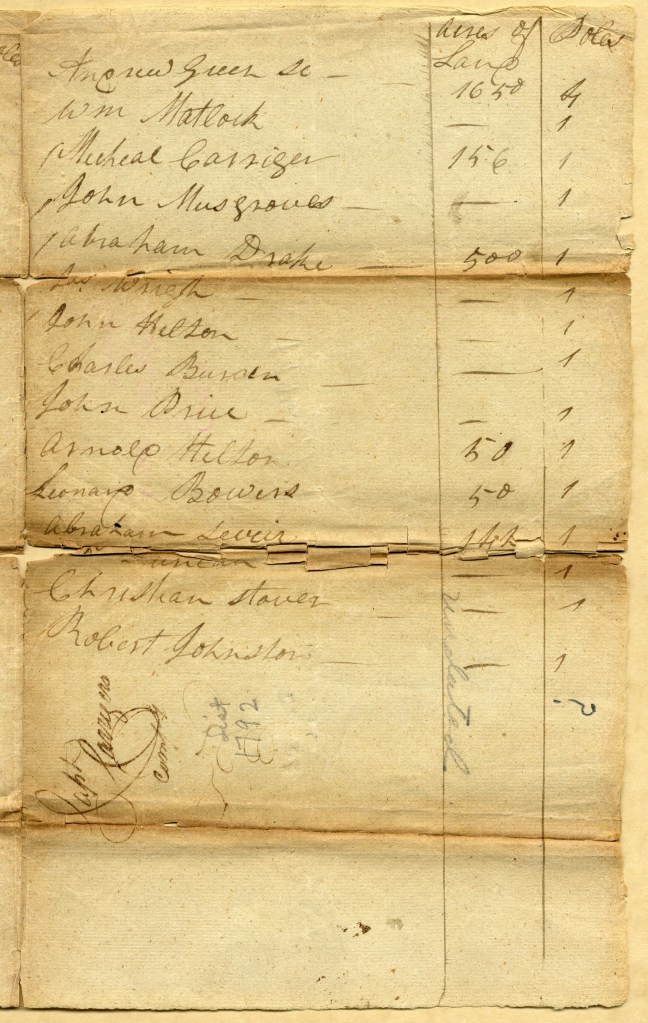 acres of Land Poles
Andrew Greer Se — 1650 4
Wm Matlock — 1
Micheal Carriger 156 1
John Musgroves — — 1
Abraham Drake — 500 1
Jas Wrigh — — 1
John Helton — — 1
Charles — — 1
John Price — — 1
Arnold Helton 50 1
Leonard Bowers 50 1
Abraham 1
Duncan — 1
Christian Stover — — 1
Robert Johnston — — 1
Capt Carrigers
Comp
List
1792
undated
?